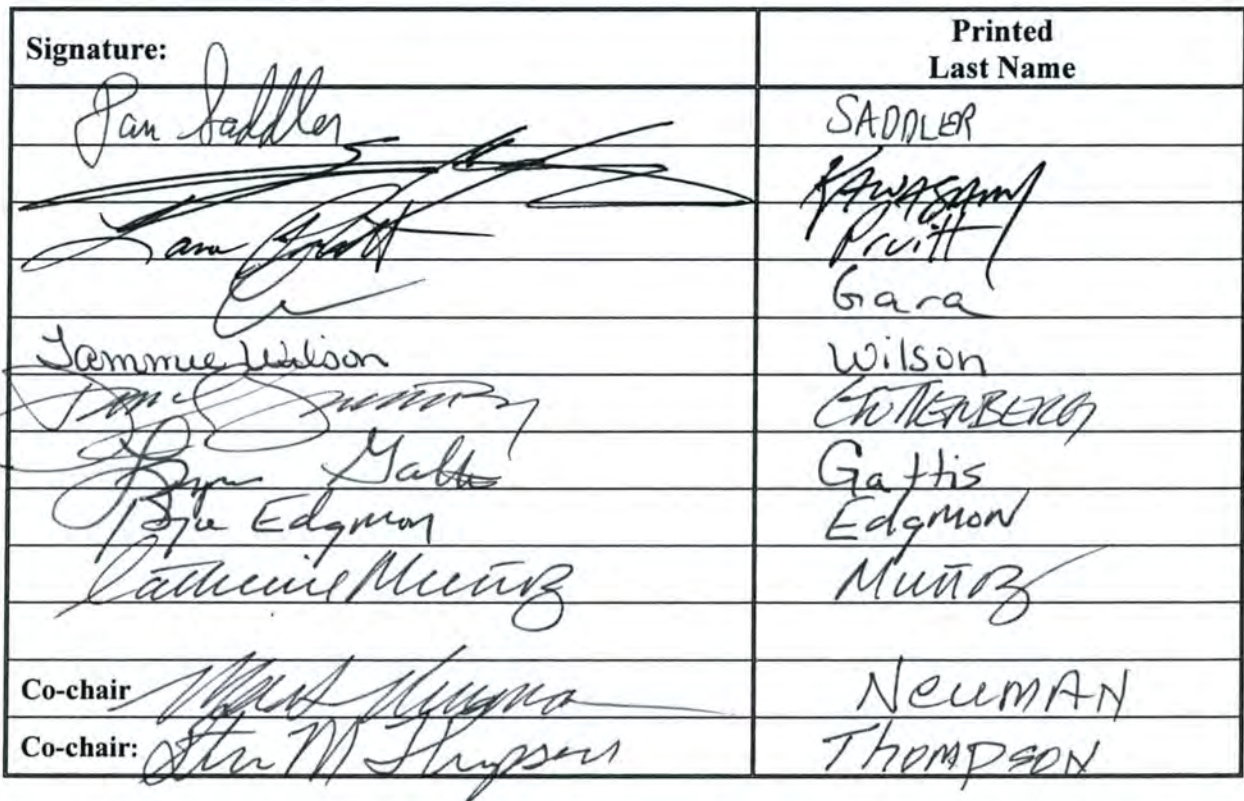 Signature: Printed Last Name
Dan Saddler SADDLER
KAWASAKI
Lance Pruitt Pruitt
Gara
Tammie Wilson Wilson
GUTTENBERG
Lynn Gattis Gattis
Bryce Edgmon Edgmon
Cathy Muñoz Muñoz
Co-chair Mark Neuman NeuMAN
Co-chair: Steve M Thompson THOMPSON